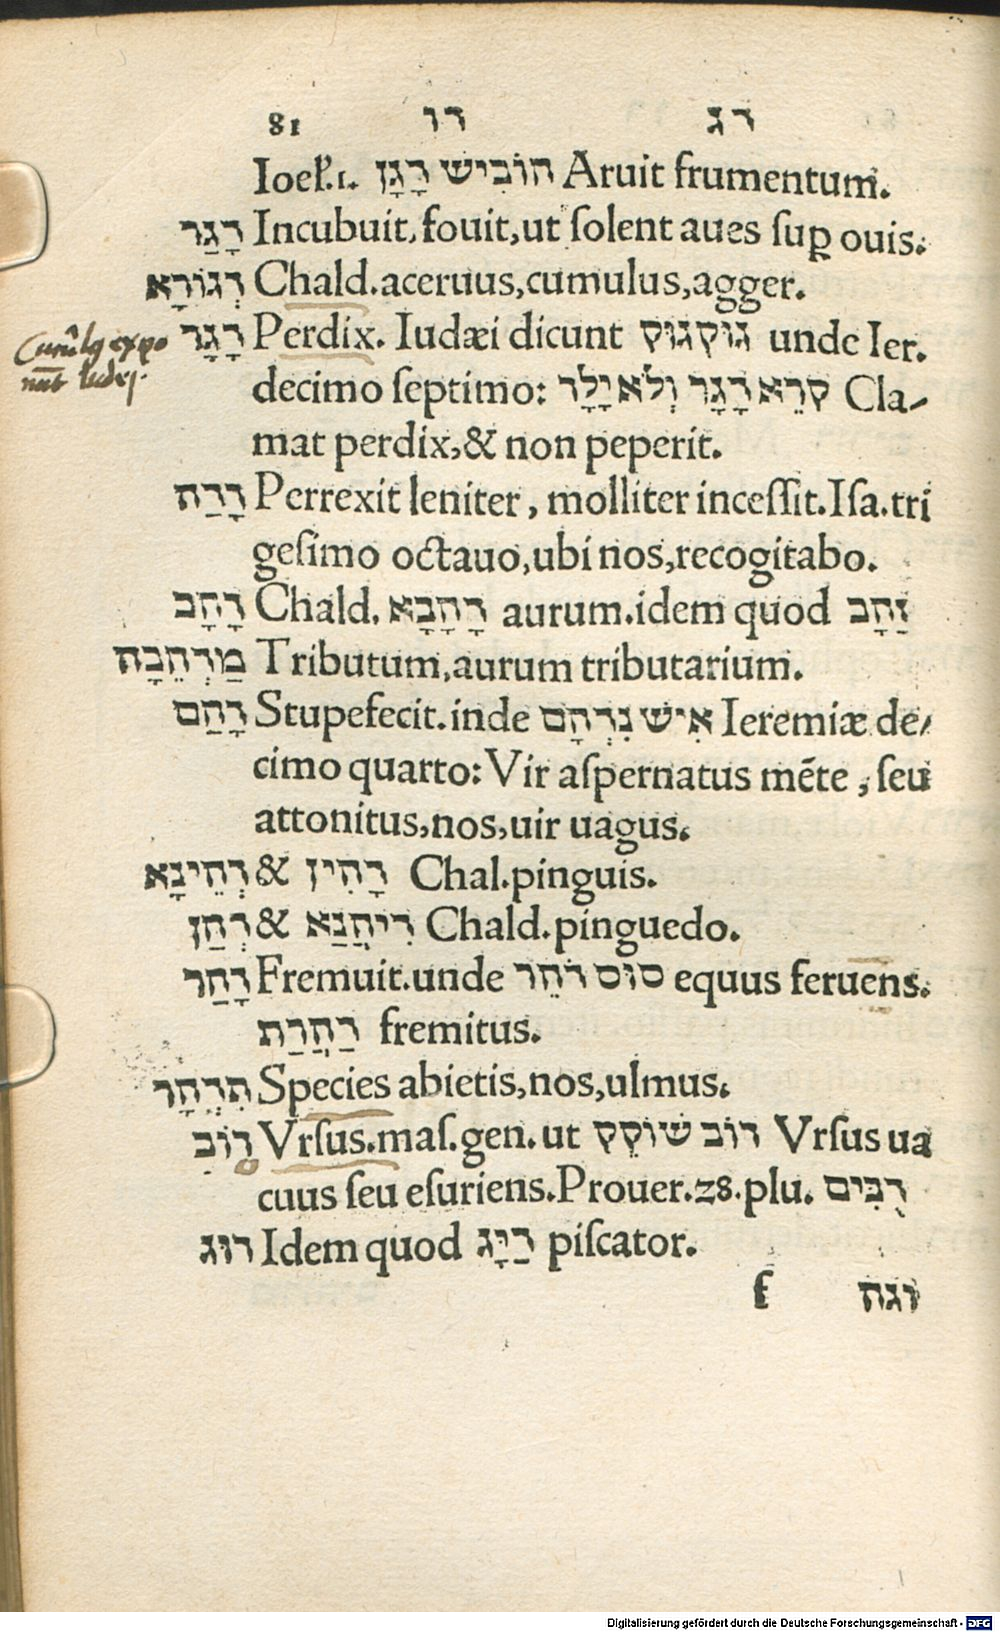 81 דו דג
Ioel.1. הוֹבִישׁ דָּגָן Aruit frumentum.
דָגַר Incubuit, fouit, ut ſolent aues ſuꝑ ouis.
דְּגוֹרָא Chald. aceruus, cumulus, agger.
דָגָר Perdix. Iudæi dicunt גוּקְגוּק unde Ier.
decimo ſeptimo: קֹרֵא דָגָר וְלֹא יָלָד Cla-
mat perdix, & non peperit.
דָדַה Perrexit leniter, molliter inceſſit. Iſa. tri
geſimo octauo, ubi nos, recogitabo.
דָהָב Chald. דָהֲבָא aurum. idem quod זַהָב
מַדְהֵבָה Tributum, aurum tributarium.
דָהַם Stupefecit. inde אִישׁ נִדְהָם Ieremiæ de-
cimo quarto: Vir aſpernatus mẽte, ſeu
attonitus, nos, uir uagus.
דְהֵינָא & דָהִין Chal. pinguis.
דְהַן & דִיהֲנַא Chald. pinguedo.
דָהַר Fremuit. unde סוּס דֹהֵר equus feruens.
דַהֲרַת fremitus.
תִּדְהָר Species abietis, nos, ulmus.
דוֹב Vrſus. maſ. gen. ut דוֹב שׁוֹקֵק Vrſus ua
cuus ſeu eſuriens. Prouer. 28. plu. דֻבִּים
דוּג Idem quod דַיָּג piſcator.
f דגה
Digitalisierung gefördert durch die Deutsche Forschungsgemeinschaft - DFG